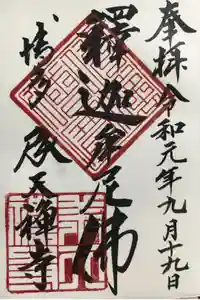 奉拝 令和元年九月十九日
釋迦牟尼佛
博多 承天禅寺